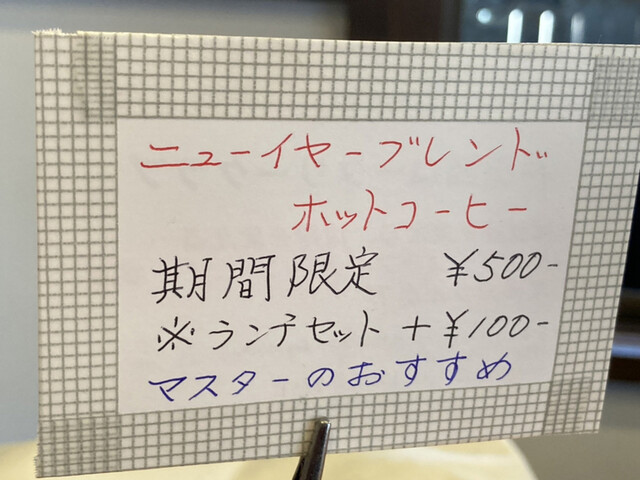 ニューイヤーブレンド
ホットコーヒー
期間限定 ¥500-
※ランチセット+¥100-
マスターのおすすめ